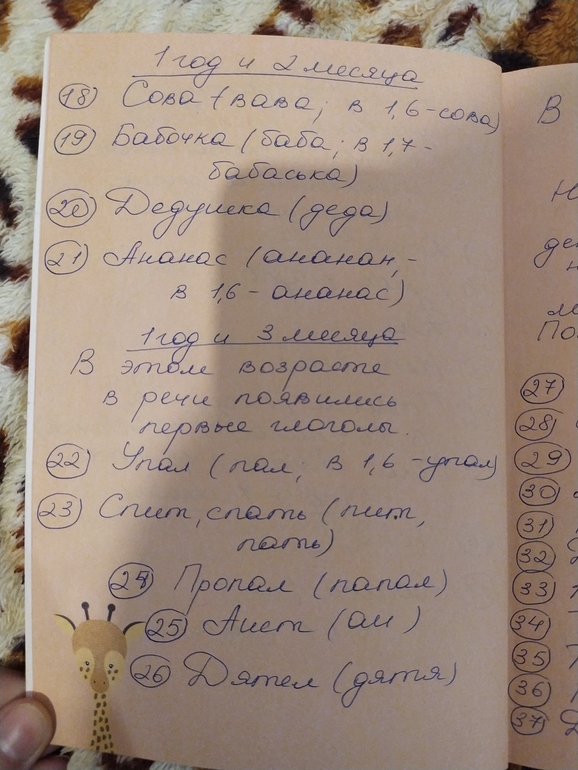 1 год и 2 месяца
18 Сова (вава; в 1,6-сова)
19 Бабочка (баба; в 1,7-
бабаська)
20 Дедушка (деда)
21 Ананас (ананан,-
в 1,6-ананас)
1 год и 3 месяца
В этом возрасте
в речи появились
первые глаголы.
22 Упал (пал; в 1,6-упал)
23 Спит, спать (пит,
пать)
24 Пропал (папал)
25 Аист (аи)
26 Дятел (дятя)
В
27
28
29
30
31
32
33
34
35
36
37